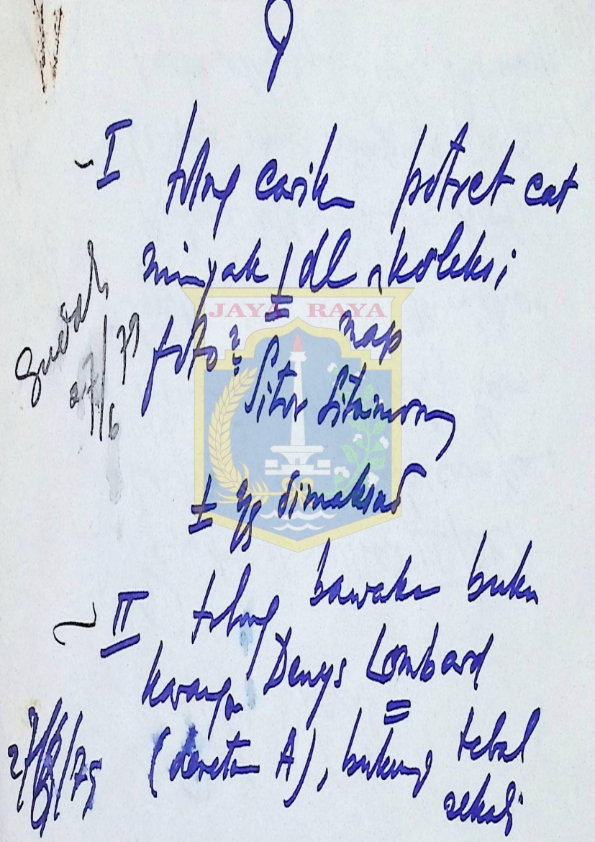 I tolong carikan potret cat
minyak / dl koleksi
map
foto² Sitor Situmorang
± yg dimaksud
Sudah
27/6 79
II tolong bawakan buku
karangan Denys Lombard
(deretan A), bukunya tebal
sekali
JAYA RAYA